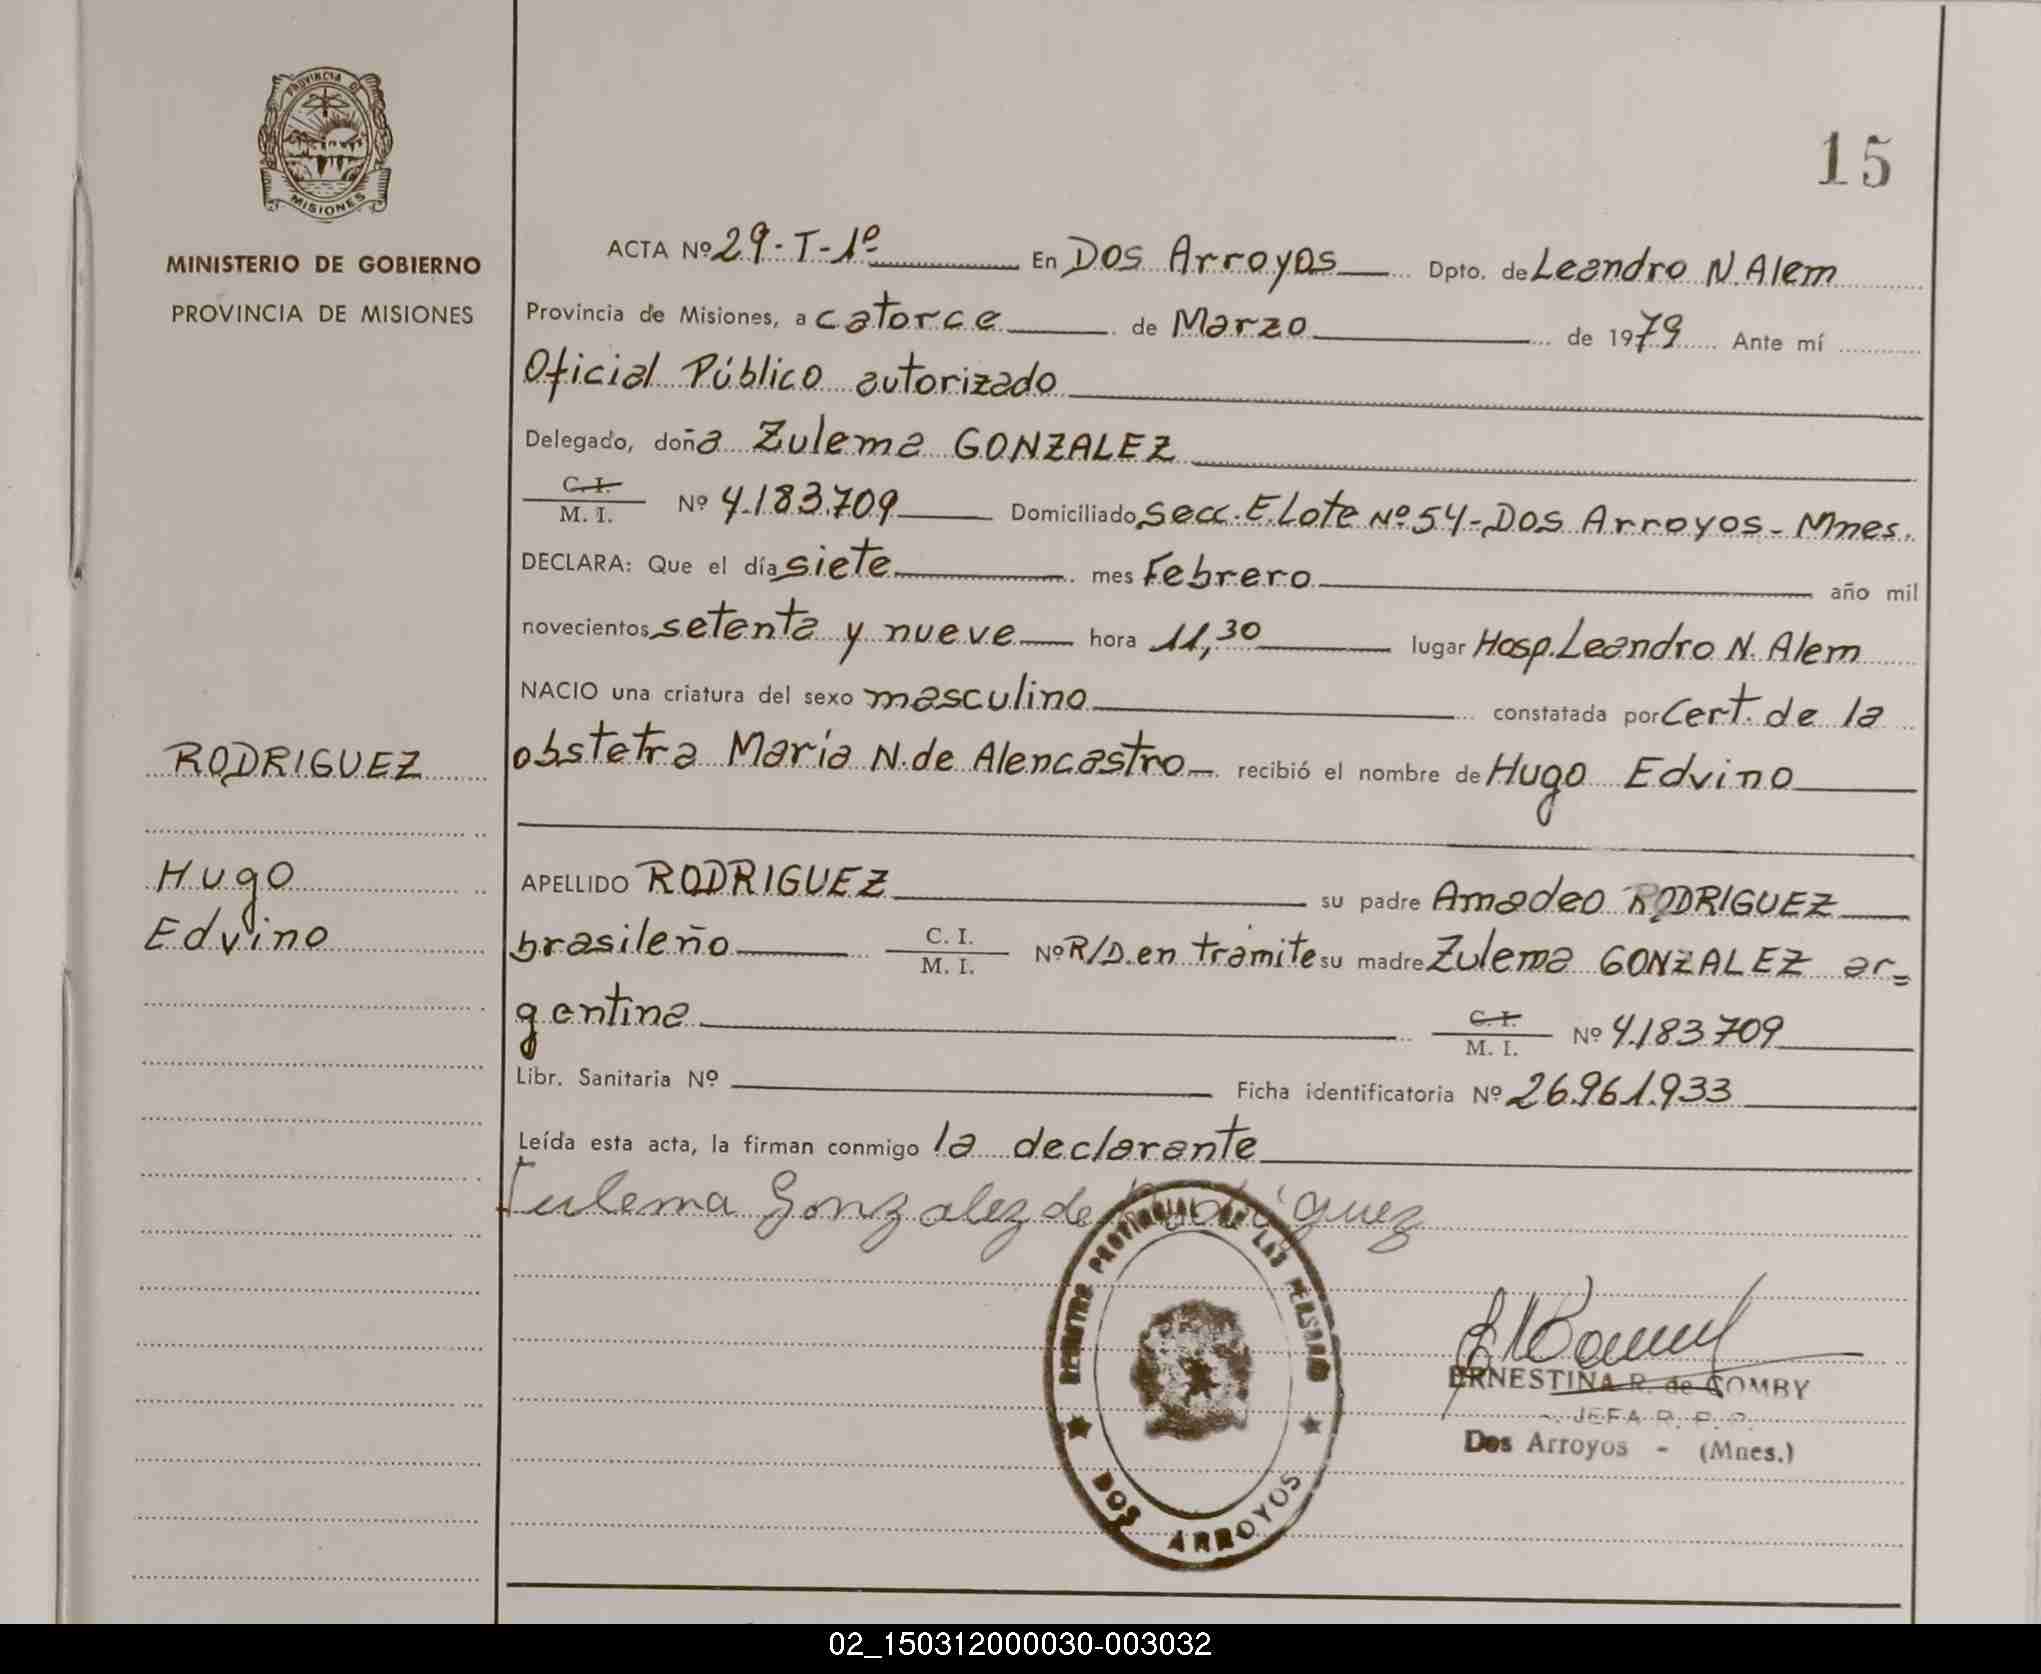 PROVINCIA DE
MISIONES
MINISTERIO DE GOBIERNO
PROVINCIA DE MISIONES
15
ACTA Nº 29-T-1º En Dos Arroyos Dpto. de Leandro N. Alem
Provincia de Misiones, a catorce de Marzo de 1979 Ante mí
Oficial Público autorizado
Delegado, doña Zulema GONZALEZ
C. I.
M. I. Nº 4.183.709 Domiciliado secc. E. Lote Nº 54-Dos Arroyos-Mnes.
DECLARA: Que el día siete mes Febrero año mil
novecientos setenta y nueve hora 11,30 lugar Hosp. Leandro N. Alem
NACIO una criatura del sexo masculino constatada por Cert. de la
obstetra María N. de Alencastro recibió el nombre de Hugo Edvino
RODRIGUEZ
Hugo
Edvino
APELLIDO RODRIGUEZ su padre Amadeo RODRIGUEZ
brasileño C. I. M. I. Nº R/D. en tramite su madre Zulema GONZALEZ ar=
gentina C. I. M. I. Nº 4.183709
Libr. Sanitaria Nº Ficha identificatoria Nº 26.961.933
Leída esta acta, la firman conmigo la declarante
Zulema Gonzalez de Rodriguez
REGISTRO PROVINCIAL DE LAS PERSONAS
DOS ARROYOS
ERNESTINA R. de COMBY
JEFA R. P. P.
Dos Arroyos - (Mnes.)
02_150312000030-003032